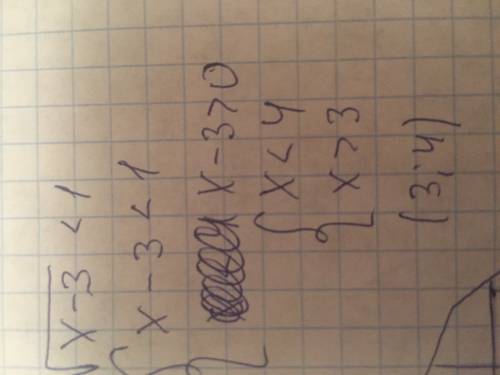 √x-3 < 1
{ x - 3 < 1
x - 3 > 0
{ x < 4
x > 3
(3; 4)